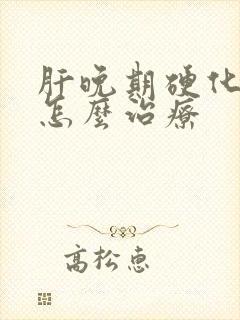 肝晚期硬化
怎麼治療
高松惠